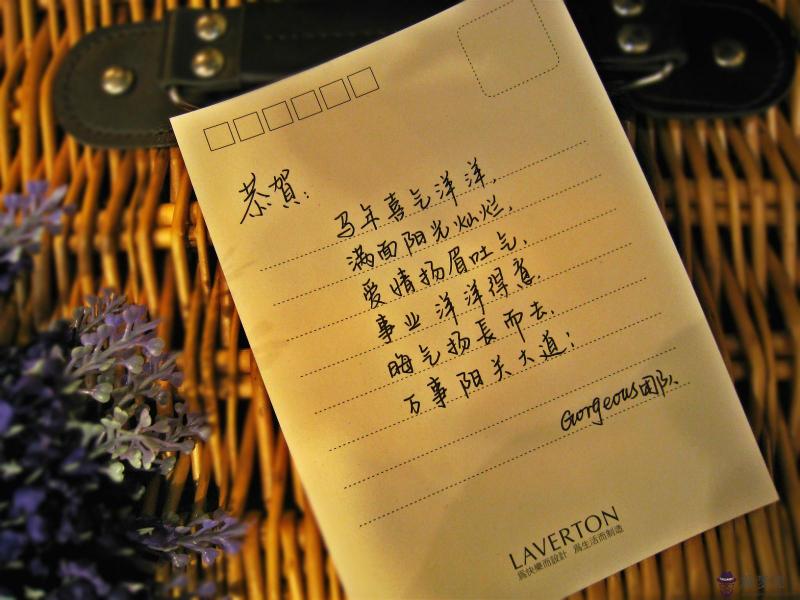 恭賀：
马年喜气洋洋，
满面阳光灿烂，
爱情扬眉吐气，
事业洋洋得意，
晦气扬長而去，
万事阳关大道！
Gorgeous团队
LAVERTON
爲快樂而設計 爲生活而制造